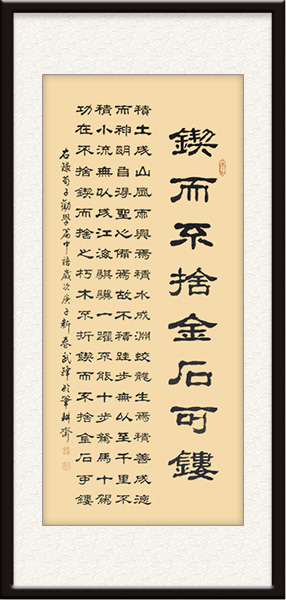 鍥而不捨金石可鏤
積土成山風雨興焉積水成淵蛟龍生焉積善成德
而神明自得聖心備焉故不積跬步無以至千里不
積小流無以成江海騏驥一躍不能十步駑馬十駕
功在不捨鍥而捨之朽木不折鍥而不捨金石可鏤
右錄荀子勸學篇中語歲次庚子新春武於筆耕齋